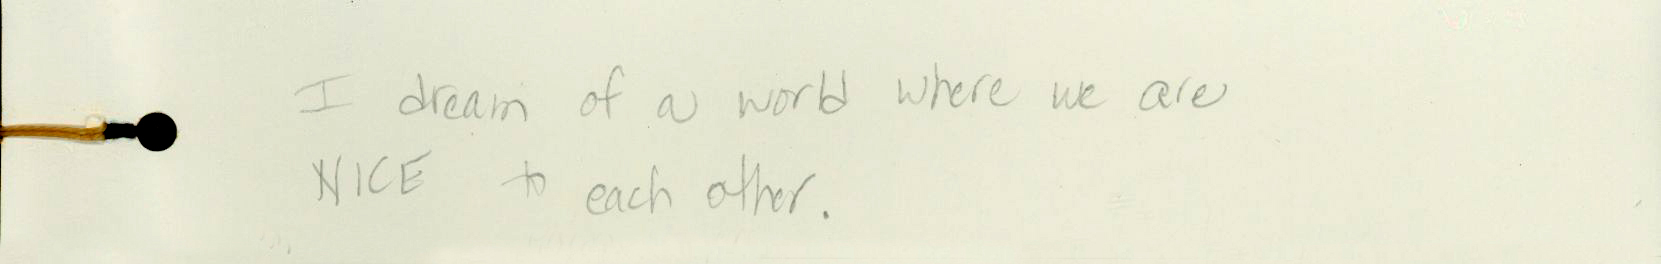 I dream of a world where we are
NICE to each other.